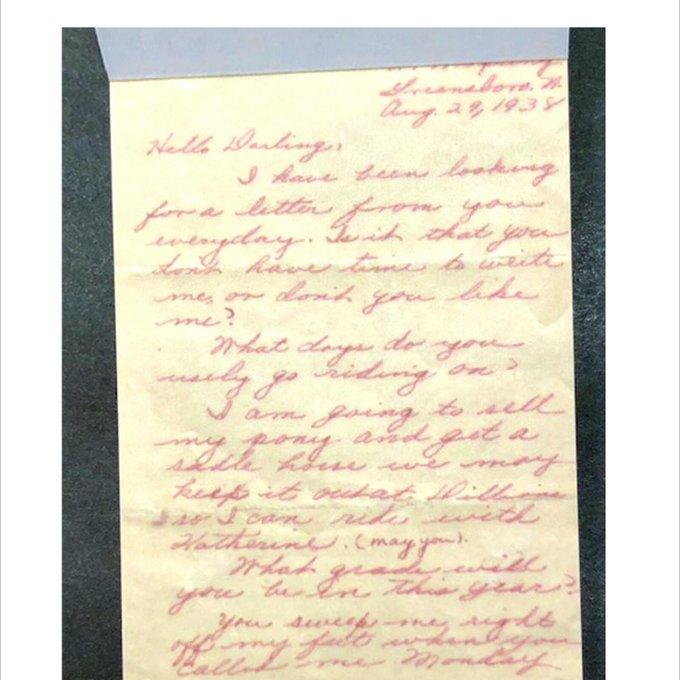 Greensboro, N.
Aug. 29, 1938
Hello Darling,
I have been looking
for a letter from you
everyday. Is it that you
dont have time to write
me, or don't you like
me?
What days do you
usely go riding on?
I am going to sell
my pony and get a
sadle horse we may
keep it out at Dillions
so I can ride with
Katherine. (may you).
What grade will
you be in this year?
You sweep me right
off my feet when you
called me Monday